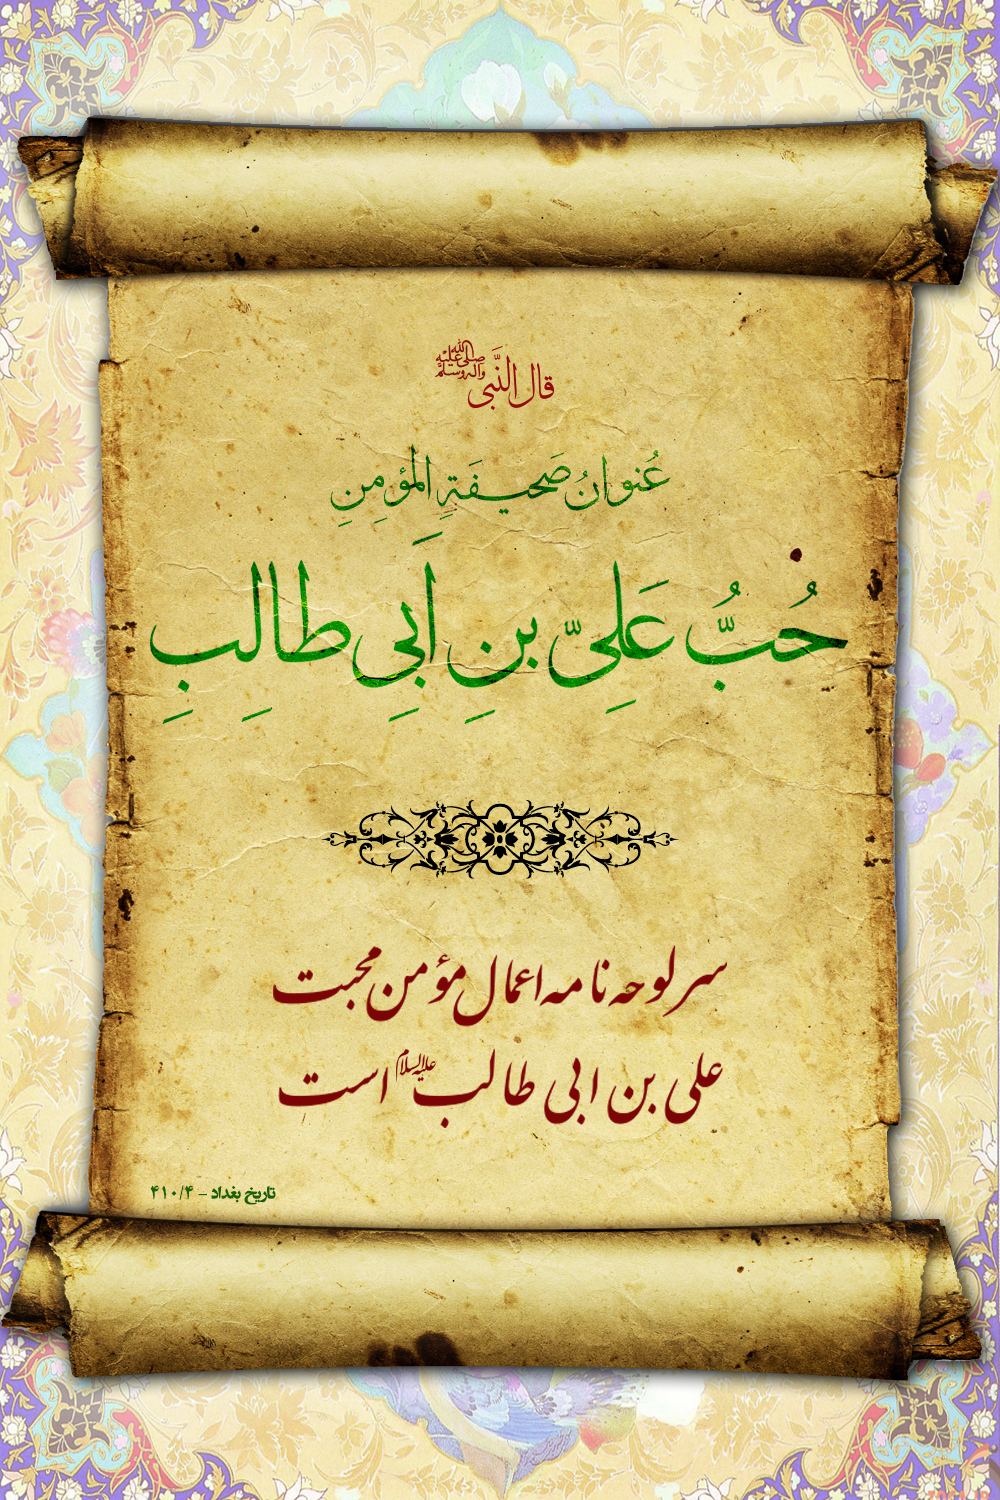 قال النَّبی صلی الله علیه وآله وسلم
عُنوانُ صَحیـفَةِ المؤمِنِ
حُبُّ عَلِیّ بنِ اَبِی طالِبِ
سرلوحه نامه اعمال مؤمن محبت
علی بن ابی طالب علیه السلام است
تاریخ بغداد – ۴۱۰/۴